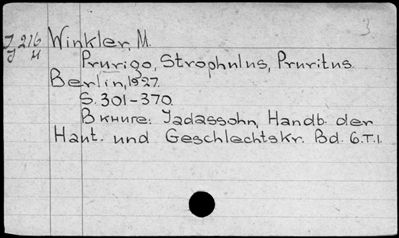 3
J 216 Winkler, M.
J W
Prurigo, Strophulus, Pruritus.
Berlin, 1927.
S. 301-370.
В книге: Jadassohn, Handb. der
Haut. und Geschlechtskr. Bd. 6.T.1.